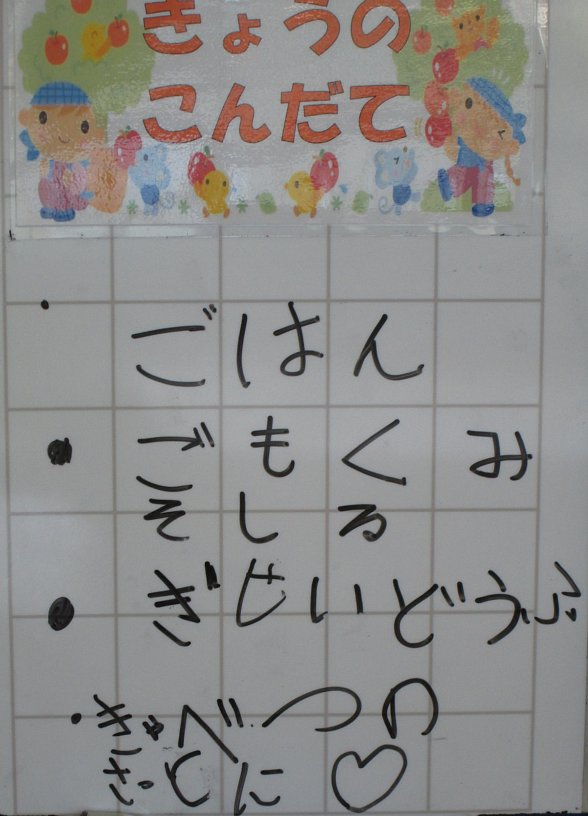 きょうの
こんだて
・ごはん
・ごもくみ
そしる
・ぎせいどうふ
・きゃべつの
ごに♡